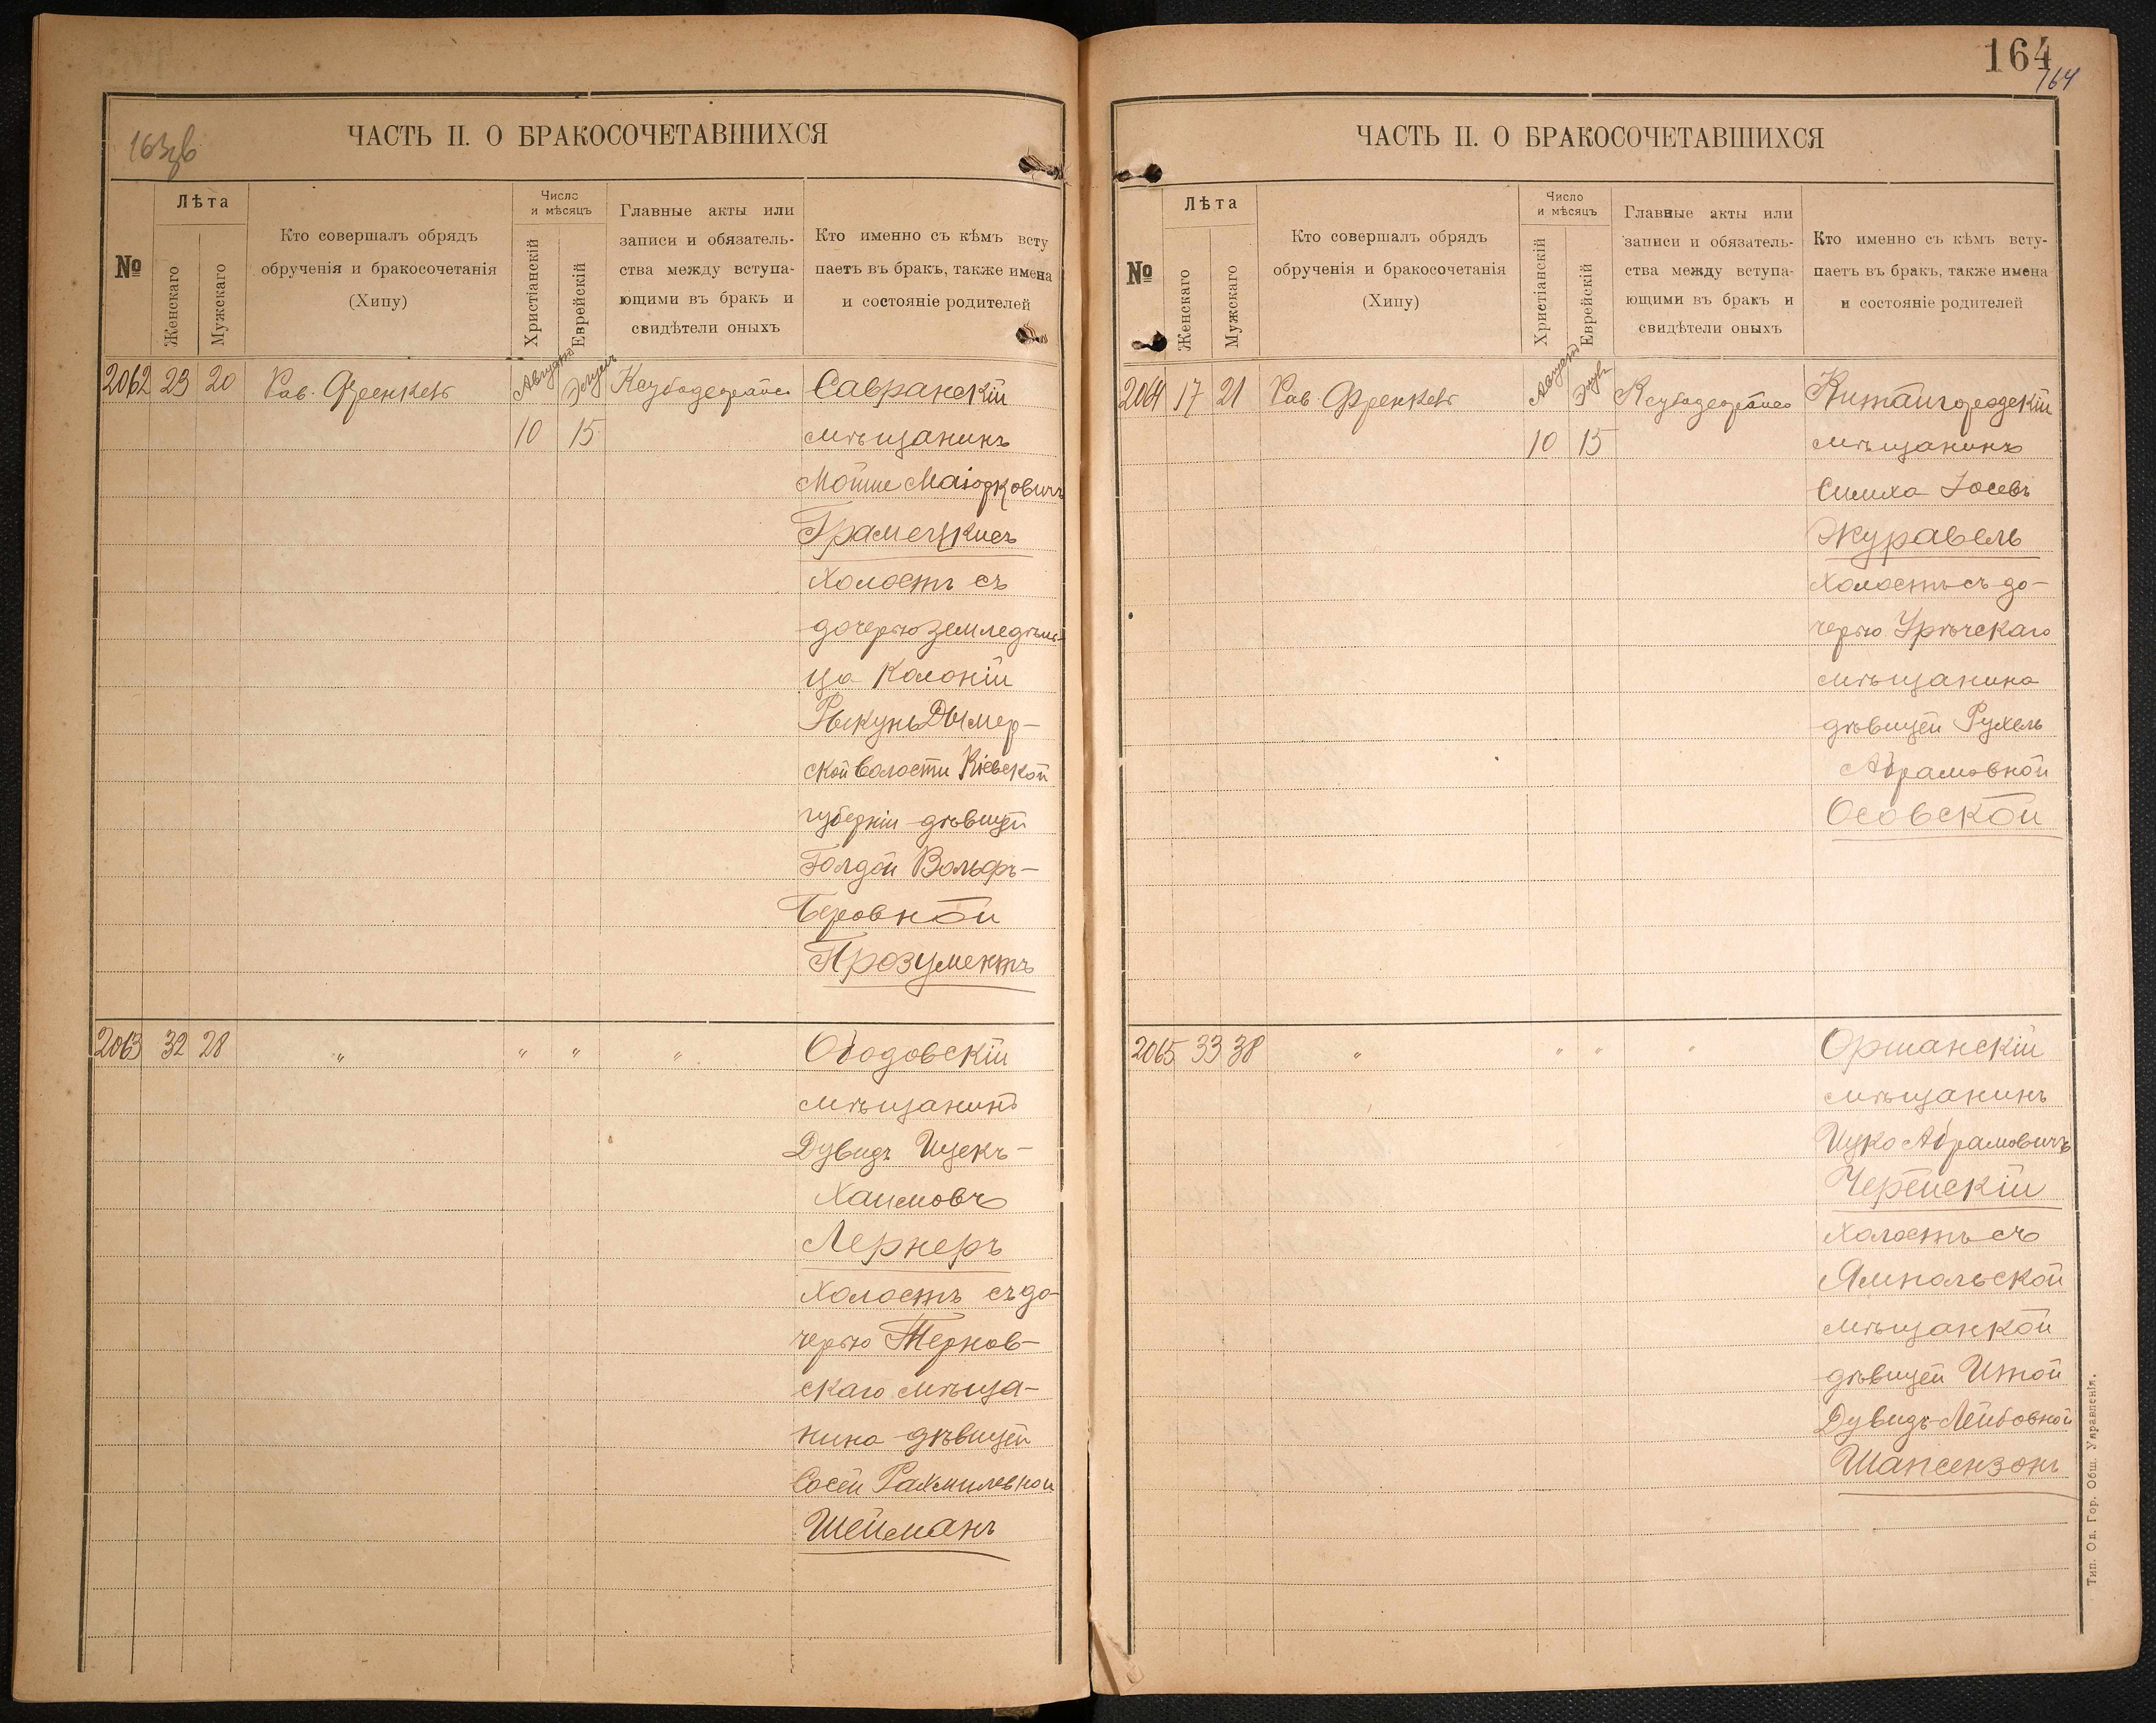 163 зв
ЧАСТЬ II. О БРАКОСОЧЕТАВШИХСЯ
№
Лѣта
Женскаго
Мужскаго
Кто совершалъ обрядъ
обрученія и бракосочетанія
(Хипу)
Число
и мѣсяцъ
Христіанскій
Еврейскій
Главные акты или
записи и обязатель-
ства между вступа-
ющими въ бракъ и
свидѣтели оныхъ
Кто именно съ кѣмъ всту
паетъ въ бракъ, также имена
и состояніе родителей
2062 23 20 Рав. Френкель Августъ Элулъ Савранскій
10 15 мѣщанинъ
Мошше
холостъ съ
дочерью земледѣль-
ца Колоніи
Рыкунь Дымер-
ской волости Кіевской
губерніи дѣвицей
Голдой Вольфъ-
Беровной
Прозументъ
2063 32 28 " " " " Ободовскій
мѣщанинъ
Дувидъ Ицекъ-
Хаимовъ
Лернеръ
холостъ съ до-
черью Тернов-
скаго мѣща-
нина дѣвицей
Сосей Рахмилевной
Шейманъ
164
164
ЧАСТЬ II. О БРАКОСОЧЕТАВШИХСЯ
№
Лѣта
Женскаго
Мужскаго
Кто совершалъ обрядъ
обрученія и бракосочетанія
(Хипу)
Число
и мѣсяцъ
Христіанскій
Еврейскій
Главные акты или
записи и обязатель-
ства между вступа-
ющими въ бракъ и
свидѣтели оныхъ
Кто именно съ кѣмъ всту-
паетъ въ бракъ, также имена
и состояніе родителей
2064 17 21 Рав Френкель Августъ Элулъ Китайгородскій
10 15 мѣщанинъ
Симха Іосевъ
Журавель
холостъ съ до-
черью Урѣчскаго
мѣщанина
дѣвицей Рухель
Абрамовной
Осовской
2065 33 38 " " " " Оршанскій
мѣщанинъ
Ицко Абрамовичъ
Черейскій
холостъ съ
Ямпольской
мѣщанкой
дѣвицей Итой
Дувидъ-Лейбовной
Шапсензонъ
Тип. Од. Гор. Общ. Управленія.